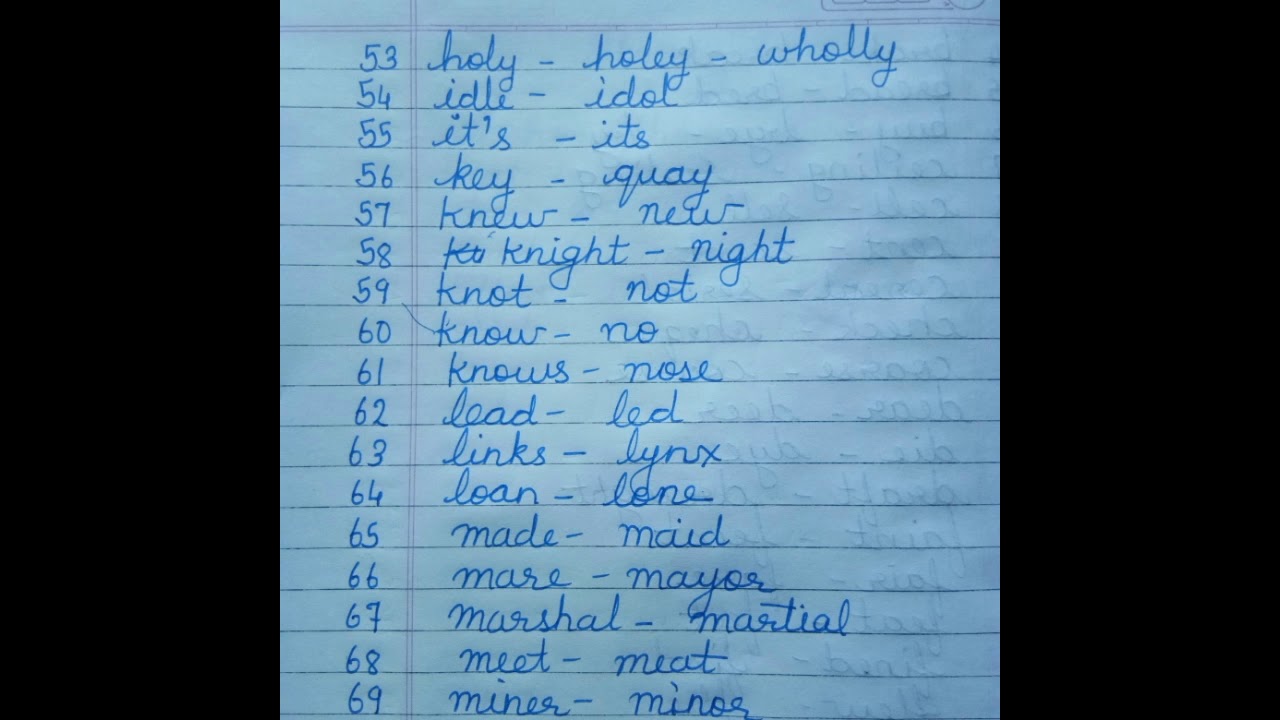 53 holy - holey - wholly
54 idle - idol
55 it's - its
56 key - quay
57 knew - new
58 knight - night
59 knot - not
60 know - no
61 knows - nose
62 lead - led
63 links - lynx
64 loan - lone
65 made - maid
66 mare - mayor
67 marshal - martial
68 meet - meat
69 miner - minor